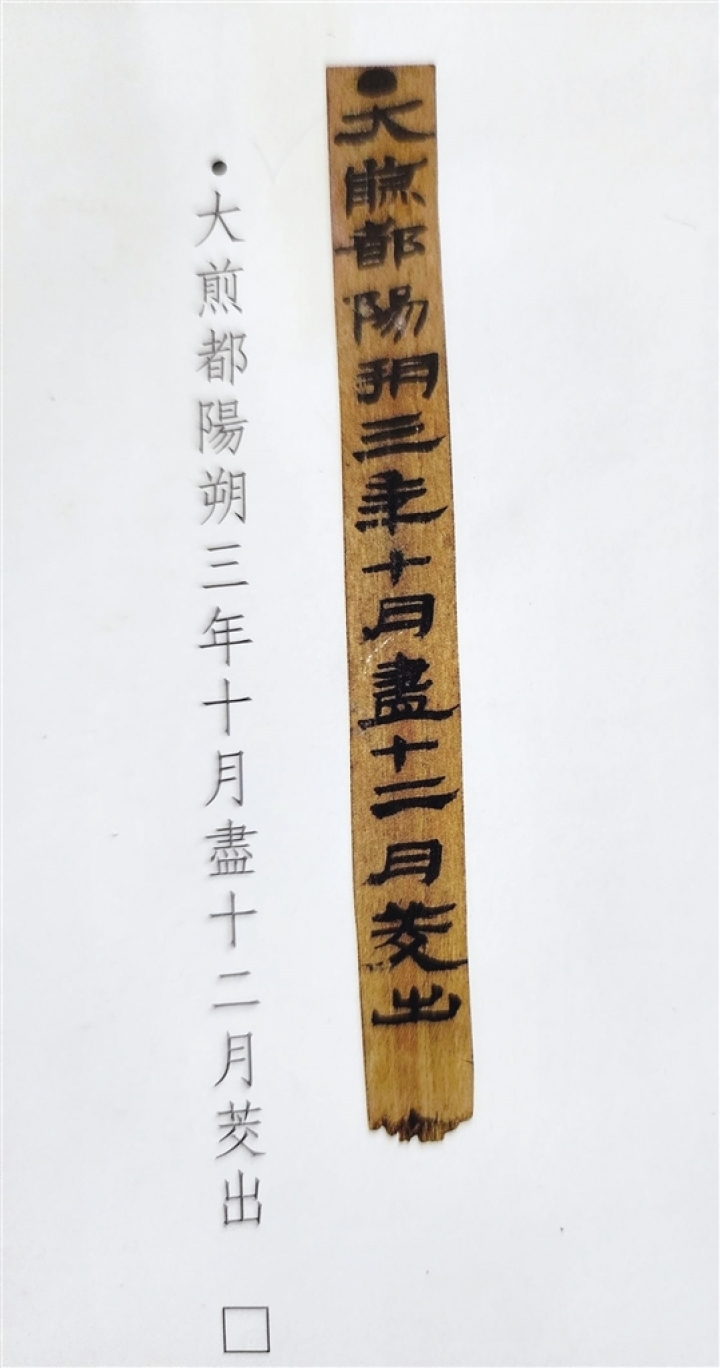 ●大煎都陽朔三年十月盡十二月茭出
•大煎都陽朔三年十月盡十二月茭出□